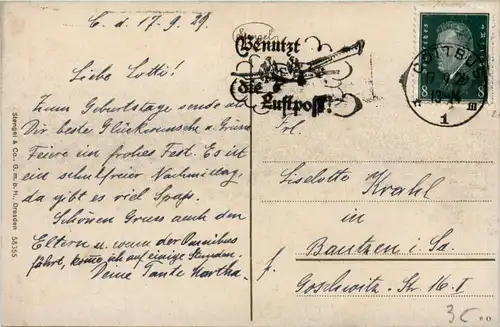 C. d. 17.9.29.
Liebe Lotti!
Zum Geburtstage sende ich
Dir beste Glückwünsche u. Grüsse
Feiere ein frohes Fest. Es ist
ein schulfreier Nachmittag,
da gibt es viel Spass.
Schönen Gruss auch den
Eltern u. wenn der Omnibus
fährt, komme ich auf einige Stunden.
Deine Tante Martha.
Stengel & Co., G. m. b. H., Dresden 58355
Benutzt
die
Luftpost!
COTTBUS
1
m
8 8
Frl.
Liselotte Krahl
in
Bautzen i. Sa.
Goschwitz-Str. 16. I